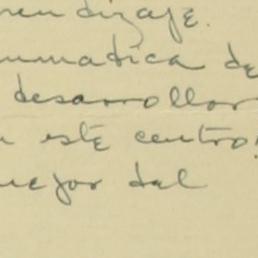 rendizaje.
umatica de
desarrollar
este centro!
mejor del